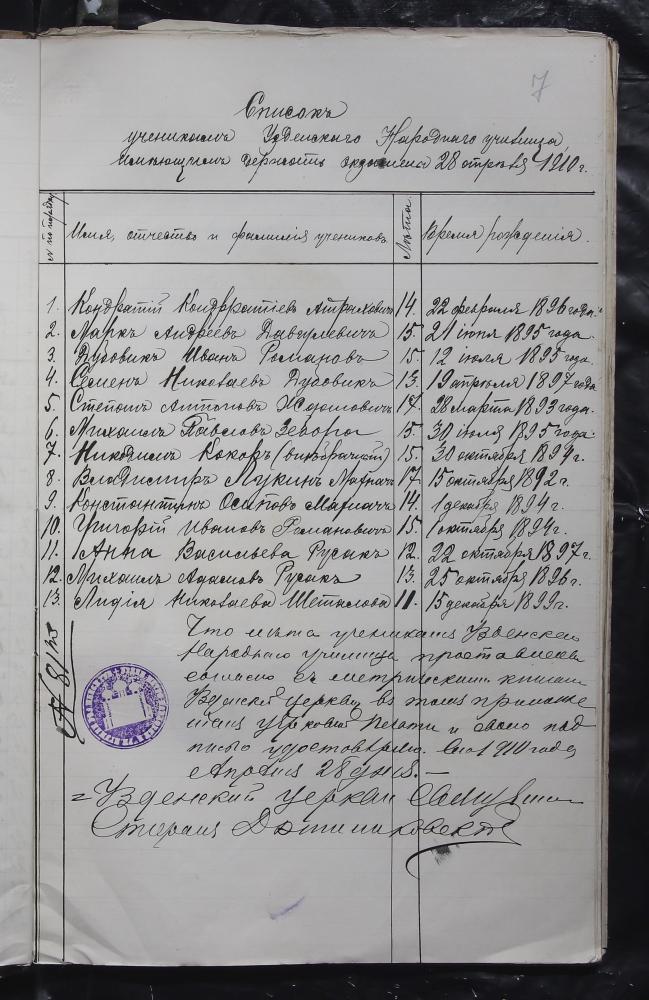 7
Списокъ
ученикамъ Узденскаго Народнаго училища,
имѣющимъ держать экзамены 28 апрѣля 1910 г.
№ по порядку
Имя, отчество и фамилія учениковъ.
Лѣта.
Время рожденія.
1. Кондратій Кондратіевъ Атрахович 14. 22 февраля 1896 года.
2. Маркъ Андреевъ 15. 21 іюня 1895 года.
3. Дубовикъ Иванъ Романовъ 15. 12 іюля 1895 года.
4. Семенъ Николаевъ Дубовикъ 13. 19 апрѣля 1897 года
5. Степанъ Антоновъ Ждановичъ 17. 28 марта 1893 года.
6. Михаилъ Павловъ 15. 30 іюля 1895 года.
7. Никодимъ Кокоръ (внѣбрачный) 15. 30 октября 1894 г.
8. Владимиръ Лукинъ 17. 15 октября 1892 г.
9. Константинъ Осиповъ 14. 1 декабря 1894 г.
10. Григорій Ивановъ Романовичъ 15. 1 октября 1894 г.
11. Анна Васильева Русакъ 12. 22 октября 1897 г.
12. Михаилъ Адамовъ Русакъ 13. 25 октября 1896 г.
13. Лидія Николаева 11. 15 декабря 1899 г.
Что лѣта ученикамъ Узденскаго
Народнаго училища проставлены
согласно съ метрическими книгами
Узденской церкви въ томъ приложе
ніемъ церковной печати и своею под
писью удостовѣряю. 1910 года
Апрѣля 28 дня.—
№ 81
Узденской церкви